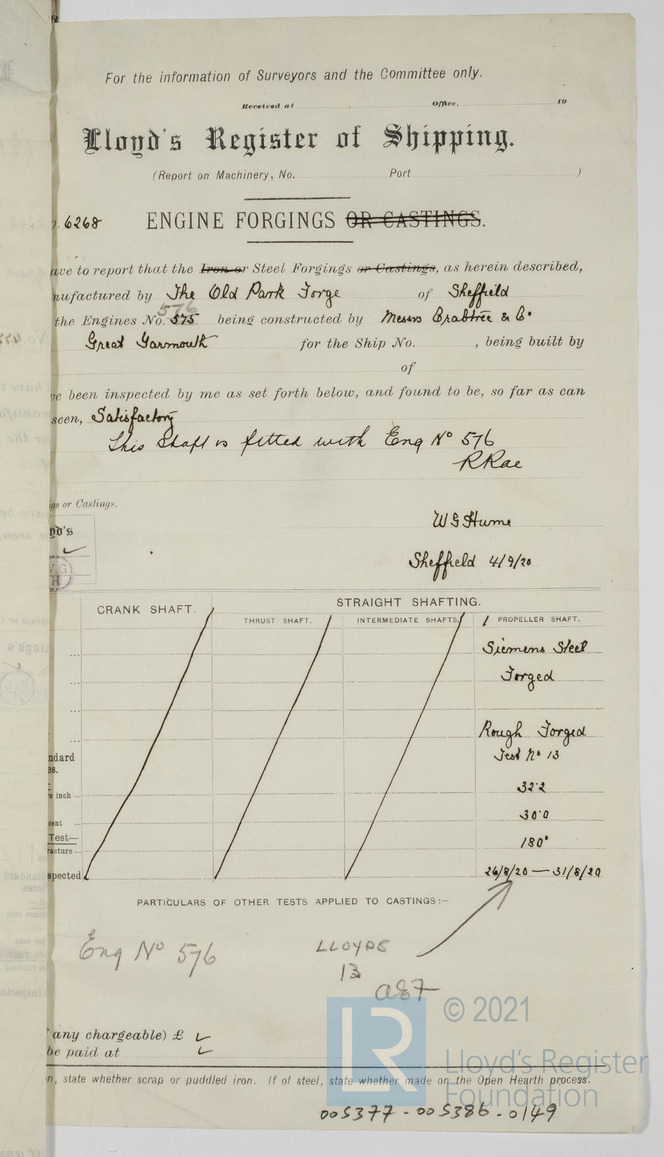 For the information of Surveyors and the Committee only.
Received at Office, 19
Lloyd's Register of Shipping.
(Report on Machinery, No. Port )
6268 ENGINE FORGINGS OR CASTINGS.
ave to report that the Iron or Steel Forgings or Castings, as herein described,
nufactured by The Old Park Forge of Sheffield
576
the Engines No. 575 being constructed by Messrs Crabtree & Co
Great Yarmouth for the Ship No. , being built by
of
e been inspected by me as set forth below, and found to be, so far as can
seen, Satisfactory
This shaft is fitted with Eng No 576
R Rae
gs or Castings.
yd's
W G Hume
Sheffield 4/9/20
CRANK SHAFT. STRAIGHT SHAFTING.
THRUST SHAFT. INTERMEDIATE SHAFTS. 1 PROPELLER SHAFT.
Siemens Steel
Forged
Rough Forged
ndard Test No 13
inch 32.2
ent 30.0
Test— 180°
racture
spected 26/8/20 — 31/8/20
PARTICULARS OF OTHER TESTS APPLIED TO CASTINGS:—
Eng No 576 LLOYDS
13
any chargeable) £ ✓
be paid at ✓
n, state whether scrap or puddled iron. If of steel, state whether made on the Open Hearth process.
LR © 2021
Lloyd's Register
Foundation
005377-005386-0149